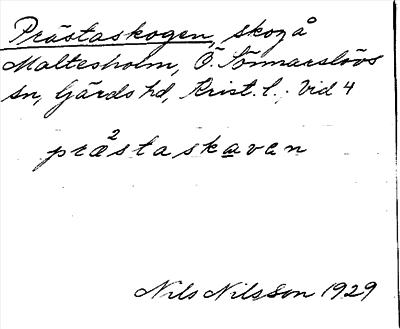 Prästaskogen, skog å
Maltesholm, Ö. Sönnarslövs
sn, Gärds hd, Krist. l.; Vid 4
præ²staskaven
Nils Nilsson 1929